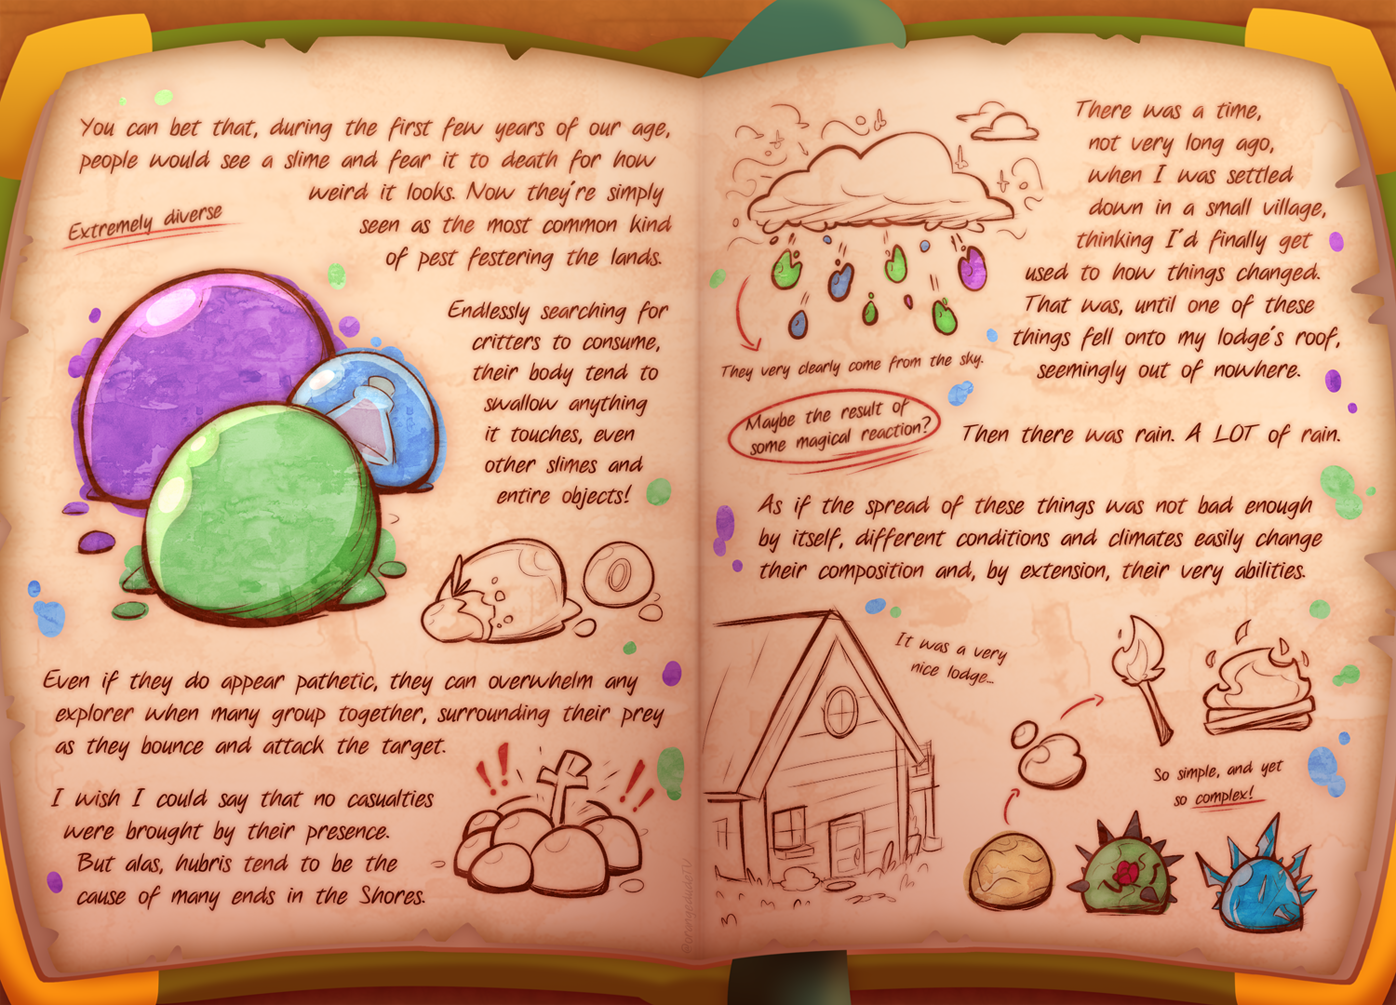 You can bet that, during the first few years of our age,
people would see a slime and fear it to death for how
weird it looks. Now they're simply
seen as the most common kind
of pest festering the lands.
Extremely diverse
Endlessly searching for
critters to consume,
their body tend to
swallow anything
it touches, even
other slimes and
entire objects!
Even if they do appear pathetic, they can overwhelm any
explorer when many group together, surrounding their prey
as they bounce and attack the target.
I wish I could say that no casualties
were brought by their presence.
But alas, hubris tend to be the
cause of many ends in the Shores.
There was a time,
not very long ago,
when I was settled
down in a small village,
thinking I'd finally get
used to how things changed.
That was, until one of these
things fell onto my lodge's roof,
seemingly out of nowhere.
They very clearly come from the sky.
Maybe the result of
some magical reaction?
Then there was rain. A LOT of rain.
As if the spread of these things was not bad enough
by itself, different conditions and climates easily change
their composition and, by extension, their very abilities.
It was a very
nice lodge...
So simple, and yet
so complex!